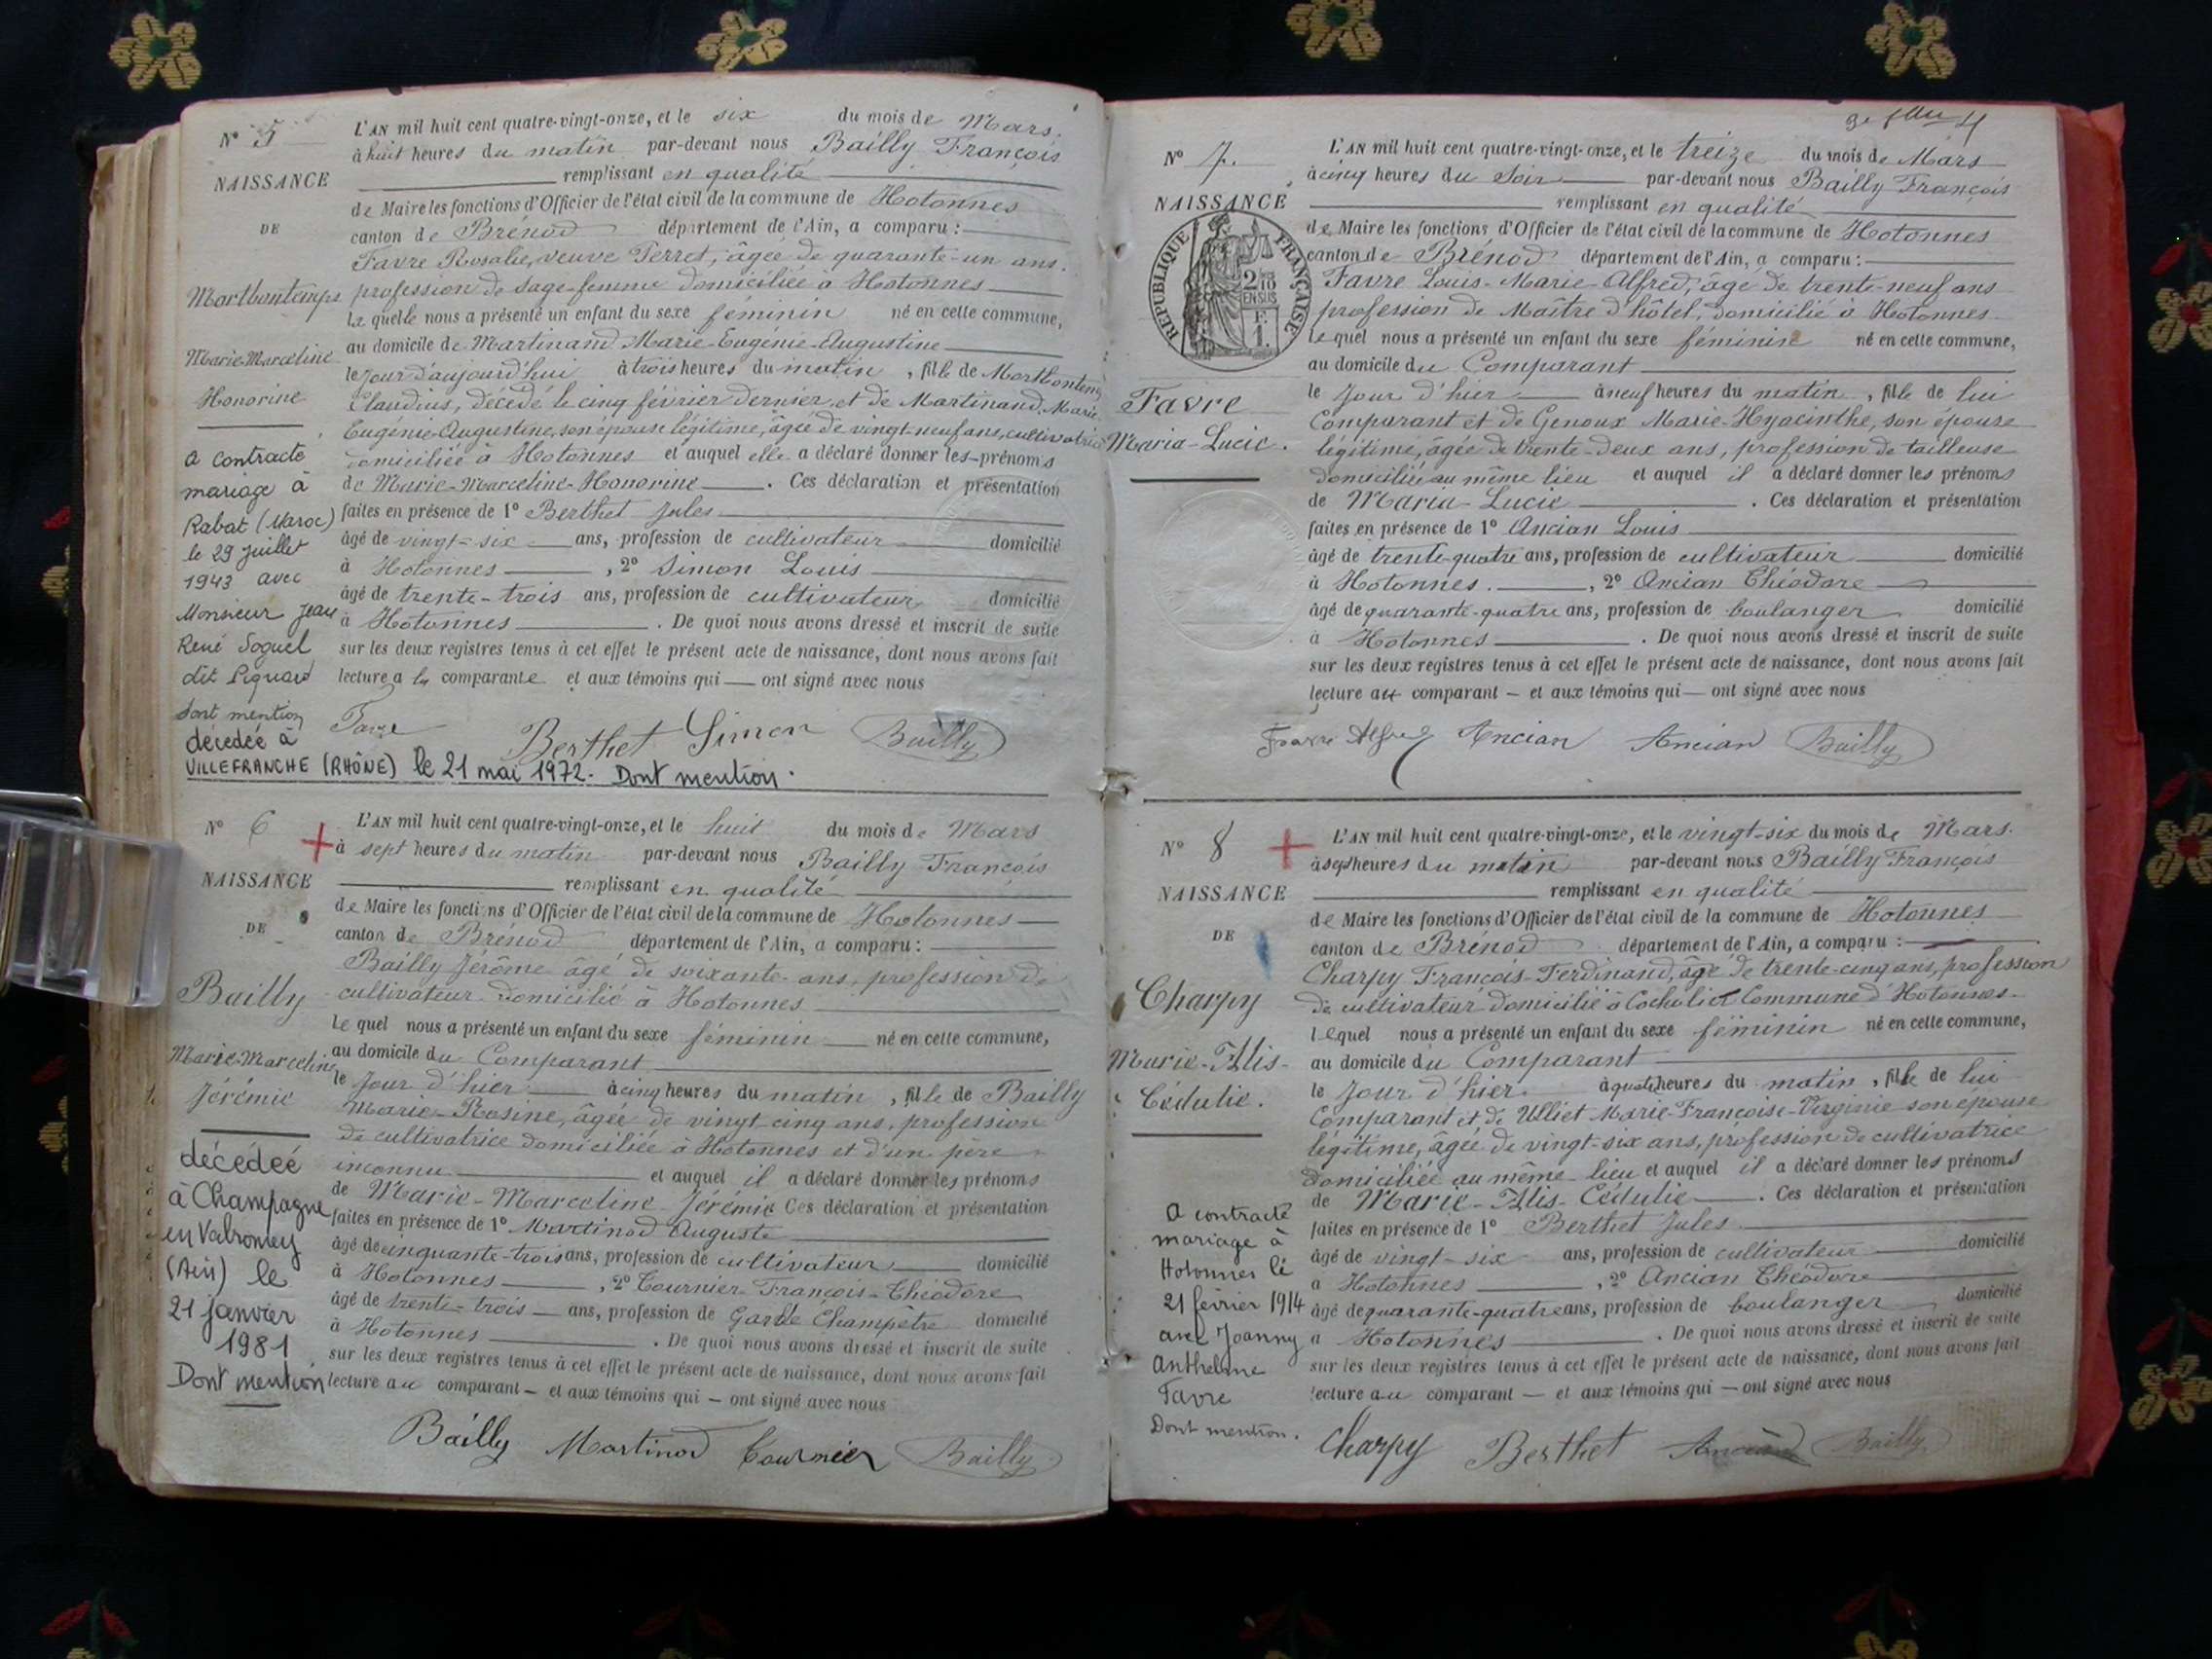 N° 5
NAISSANCE
DE
Mortbontemps
Marie-Marceline
Honorine
a contracté
mariage à
Rabat (Maroc)
le 29 juillet
1943 avec
Monsieur Jean
René Soguel
dit Piguard
dont mention
décédée à
VILLEFRANCHE (RHÔNE) le 21 mai 1972. Dont mention.
L'AN mil huit cent quatre-vingt-onze, et le six du mois de Mars.
à huit heures du matin par-devant nous Bailly François
remplissant en qualité
de Maire les fonctions d'Officier de l'état civil de la commune de Hotonnes
canton de Brénod département de l'Ain, a comparu :
Favre Rosalie, veuve Perret, âgée de quarante-un ans.
profession de sage-femme domiciliée à Hotonnes
La quelle nous a présenté un enfant du sexe féminin né en cette commune,
au domicile de Martinand Marie-Eugénie-Augustine
le jour d'aujourd'hui à trois heures du matin, fille de Mortbontemps
Claudius, décédé le cinq février dernier, et de Martinand Marie
Eugénie-Augustine, son épouse légitime, âgée de vingt-neuf ans, cultivatrice
domiciliée à Hotonnes et auquel elle a déclaré donner les prénoms
de Marie-Marceline-Honorine. Ces déclaration et présentation
faites en présence de 1° Berthet Jules
âgé de vingt-six ans, profession de cultivateur domicilié
à Hotonnes, 2° Simon Louis
âgé de trente-trois ans, profession de cultivateur domicilié
à Hotonnes. De quoi nous avons dressé et inscrit de suite
sur les deux registres tenus à cet effet le présent acte de naissance, dont nous avons fait
lecture a la comparante et aux témoins qui — ont signé avec nous
Favre Berthet Simon Bailly
N° 6
NAISSANCE
DE
Bailly
Marie-Marceline
Jérémie
décédée
à Champagne
en Valromey
(Ain) le
21 janvier
1981
Dont mention
L'AN mil huit cent quatre-vingt-onze, et le huit du mois de Mars
à sept heures du matin par-devant nous Bailly François
remplissant en qualité
de Maire les fonctions d'Officier de l'état civil de la commune de Hotonnes
canton de Brénod département de l'Ain, a comparu :
Bailly Jérôme âgé de soixante ans, profession de
cultivateur domicilié à Hotonnes
Le quel nous a présenté un enfant du sexe féminin né en cette commune,
au domicile du Comparant
le Jour d'hier à cinq heures du matin, fille de Bailly
Marie-Rosine, âgée de vingt cinq ans, profession
de cultivatrice domiciliée à Hotonnes et d'un père
inconnu et auquel il a déclaré donner les prénoms
de Marie-Marceline-Jérémie Ces déclaration et présentation
faites en présence de 1° Martinod Auguste
âgé de cinquante-trois ans, profession de cultivateur domicilié
à Hotonnes, 2° Tournier François-Théodore
âgé de trente-trois ans, profession de Garde Champêtre domicilié
à Hotonnes. De quoi nous avons dressé et inscrit de suite
sur les deux registres tenus à cet effet le présent acte de naissance, dont nous avons fait
lecture au comparant — et aux témoins qui — ont signé avec nous
Bailly Martinod Tournier Bailly
4
N° 7.
NAISSANCE
REPUBLIQUE FRANÇAISE
2/10
EN SUS
F.
1.
Favre
Maria-Lucie.
L'AN mil huit cent quatre-vingt-onze, et le treize du mois de Mars
à cinq heures du Soir par-devant nous Bailly François
remplissant en qualité
de Maire les fonctions d'Officier de l'état civil de la commune de Hotonnes
canton de Brénod département de l'Ain, a comparu :
Favre Louis-Marie-Alfred, âgé de trente-neuf ans
profession de Maître d'hôtel, domicilié à Hotonnes
Le quel nous a présenté un enfant du sexe féminin né en cette commune,
au domicile du Comparant
le Jour d'hier à neuf heures du matin, fille de lui
Comparant et de Genoux Marie-Hyacinthe, son épouse
légitime, âgée de trente-deux ans, profession de tailleuse
domiciliée au même lieu et auquel il a déclaré donner les prénoms
de Maria-Lucie. Ces déclaration et présentation
faites en présence de 1° Ancian Louis
âgé de trente-quatre ans, profession de cultivateur domicilié
à Hotonnes., 2° Ancian Théodore
âgé de quarante-quatre ans, profession de boulanger domicilié
à Hotonnes. De quoi nous avons dressé et inscrit de suite
sur les deux registres tenus à cet effet le présent acte de naissance, dont nous avons fait
lecture au comparant — et aux témoins qui — ont signé avec nous
Favre Alfred Ancian Ancian Bailly
N° 8
NAISSANCE
DE
Charpy
Marie-Alis-
Cédulie.
A contracté
mariage à
Hotonnes le
21 février 1914
avec Joanny
Anthelme
Favre
Dont mention.
L'AN mil huit cent quatre-vingt-onze, et le vingt-six du mois de Mars.
à sept heures du matin par-devant nous Bailly François
remplissant en qualité
de Maire les fonctions d'Officier de l'état civil de la commune de Hotonnes
canton de Brénod département de l'Ain, a comparu :
Charpy François-Ferdinand, âgé de trente-cinq ans, profession
de cultivateur domicilié à Commune d'Hotonnes.
Lequel nous a présenté un enfant du sexe féminin né en cette commune,
au domicile du Comparant
le Jour d'hier. à quatre heures du matin, fille de lui
Comparant et de Ulliet Marie-Françoise-Virginie son épouse
légitime, âgée de vingt-six ans, profession de cultivatrice
domiciliée au même lieu et auquel il a déclaré donner les prénoms
de Marie-Alis Cédulie. Ces déclaration et présentation
faites en présence de 1° Berthet Jules
âgé de vingt-six ans, profession de cultivateur domicilié
à Hotonnes, 2° Ancian Théodore
âgé de quarante-quatre ans, profession de boulanger domicilié
à Hotonnes. De quoi nous avons dressé et inscrit de suite
sur les deux registres tenus à cet effet le présent acte de naissance, dont nous avons fait
lecture au comparant — et aux témoins qui — ont signé avec nous
Charpy Berthet Ancian Bailly